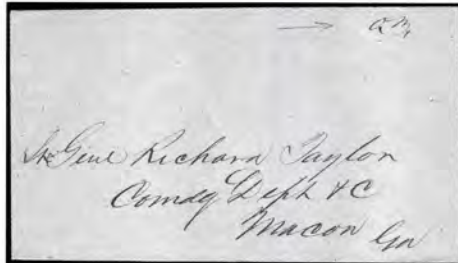 Lt Genl Richard Taylor
Comdg Dept &C
Macon Ga